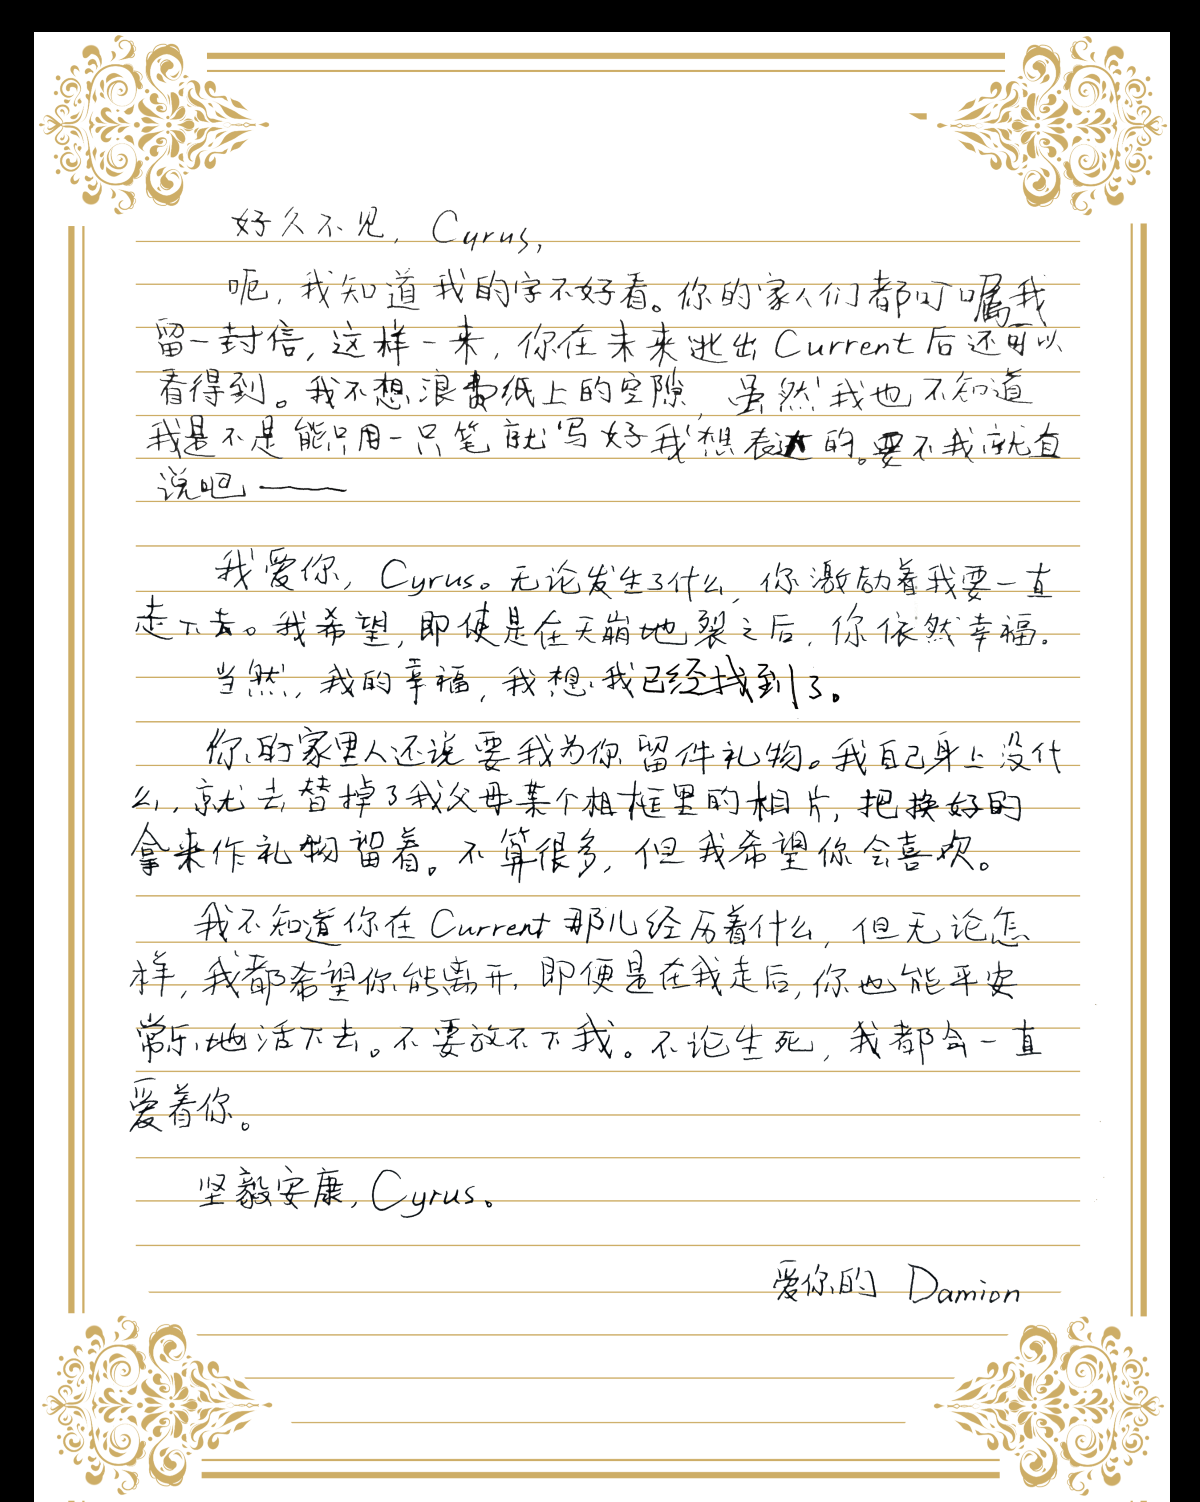 好久不见, Cyrus,
呃, 我知道我的字不好看。你的家人们都叮嘱我
留一封信, 这样一来, 你在未来逃出Current后还可以
看得到。我不想浪费纸上的空隙, 虽然我也不知道
我是不是能只用一只笔就写好我想表达的。要不我就直
说吧——
我爱你, Cyrus。无论发生了什么, 你激励着我要一直
走下去。我希望, 即使是在天崩地裂之后, 你依然幸福.
当然, 我的幸福, 我想我已经找到了。
你的家里人还说要我为你留件礼物。我自己身上没什
么, 就去替掉了我父母某个相框里的相片, 把换好的
拿来作礼物留着。不算很多, 但我希望你会喜欢。
我不知道你在Current那儿经历着什么, 但无论怎
样, 我都希望你能离开, 即便是在我走后, 你也能平安
常乐地活下去。不要放不下我。不论生死, 我都会一直
爱着你。
坚毅安康, Cyrus。
爱你的 Damion